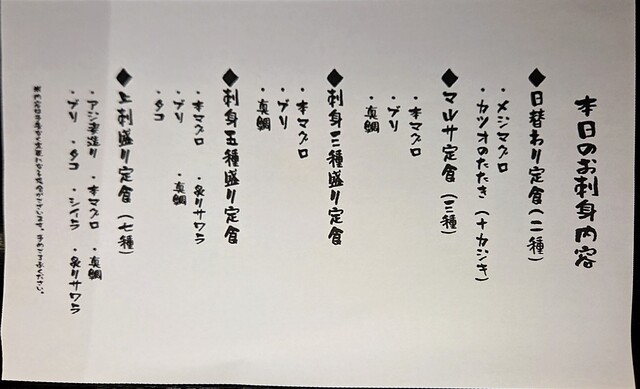 本日のお刺身内容
◆日替わり定食(二種)
・メジマグロ
・カツオのたたき(+カジキ)
◆マルサ定食(三種)
・本マグロ
・ブリ
・真鯛
◆刺身三種盛り定食
・本マグロ
・ブリ
・真鯛
◆刺身五種盛り定食
・本マグロ ・炙りサワラ
・ブリ ・真鯛
・タコ
◆上刺盛り定食(七種)
・アジ姿造り ・本マグロ ・真鯛
・ブリ ・タコ ・シイラ ・炙りサワラ